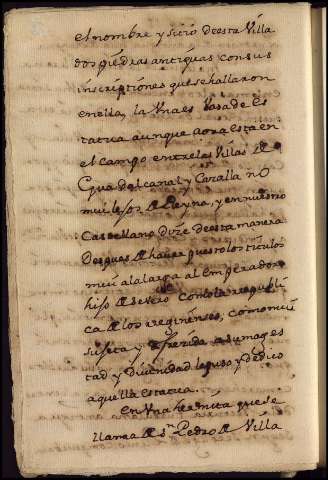 el nombre y sitio de esta Villa
dos piedras antiguas con sus
inscriptiones que se hallaron
en ella, la Una es Vasa de Es
tatua aunque aora esta en
el campo entre las Villas de
Guadalcanal y Cazalla no
mui lejos de Reyna, y en nuestro
Castellano dize de esta manera
Despues de haver puesto los titulos
mui a la larga al Emperador
hijo de Severo como la republi
ca de los reginenses, como mui
sujeta y ofrezida a su mages
tad y Divinidad le puso y dedico
aquella estatua.
En Una hermita que se
llama de Sn. Pedro de Villa